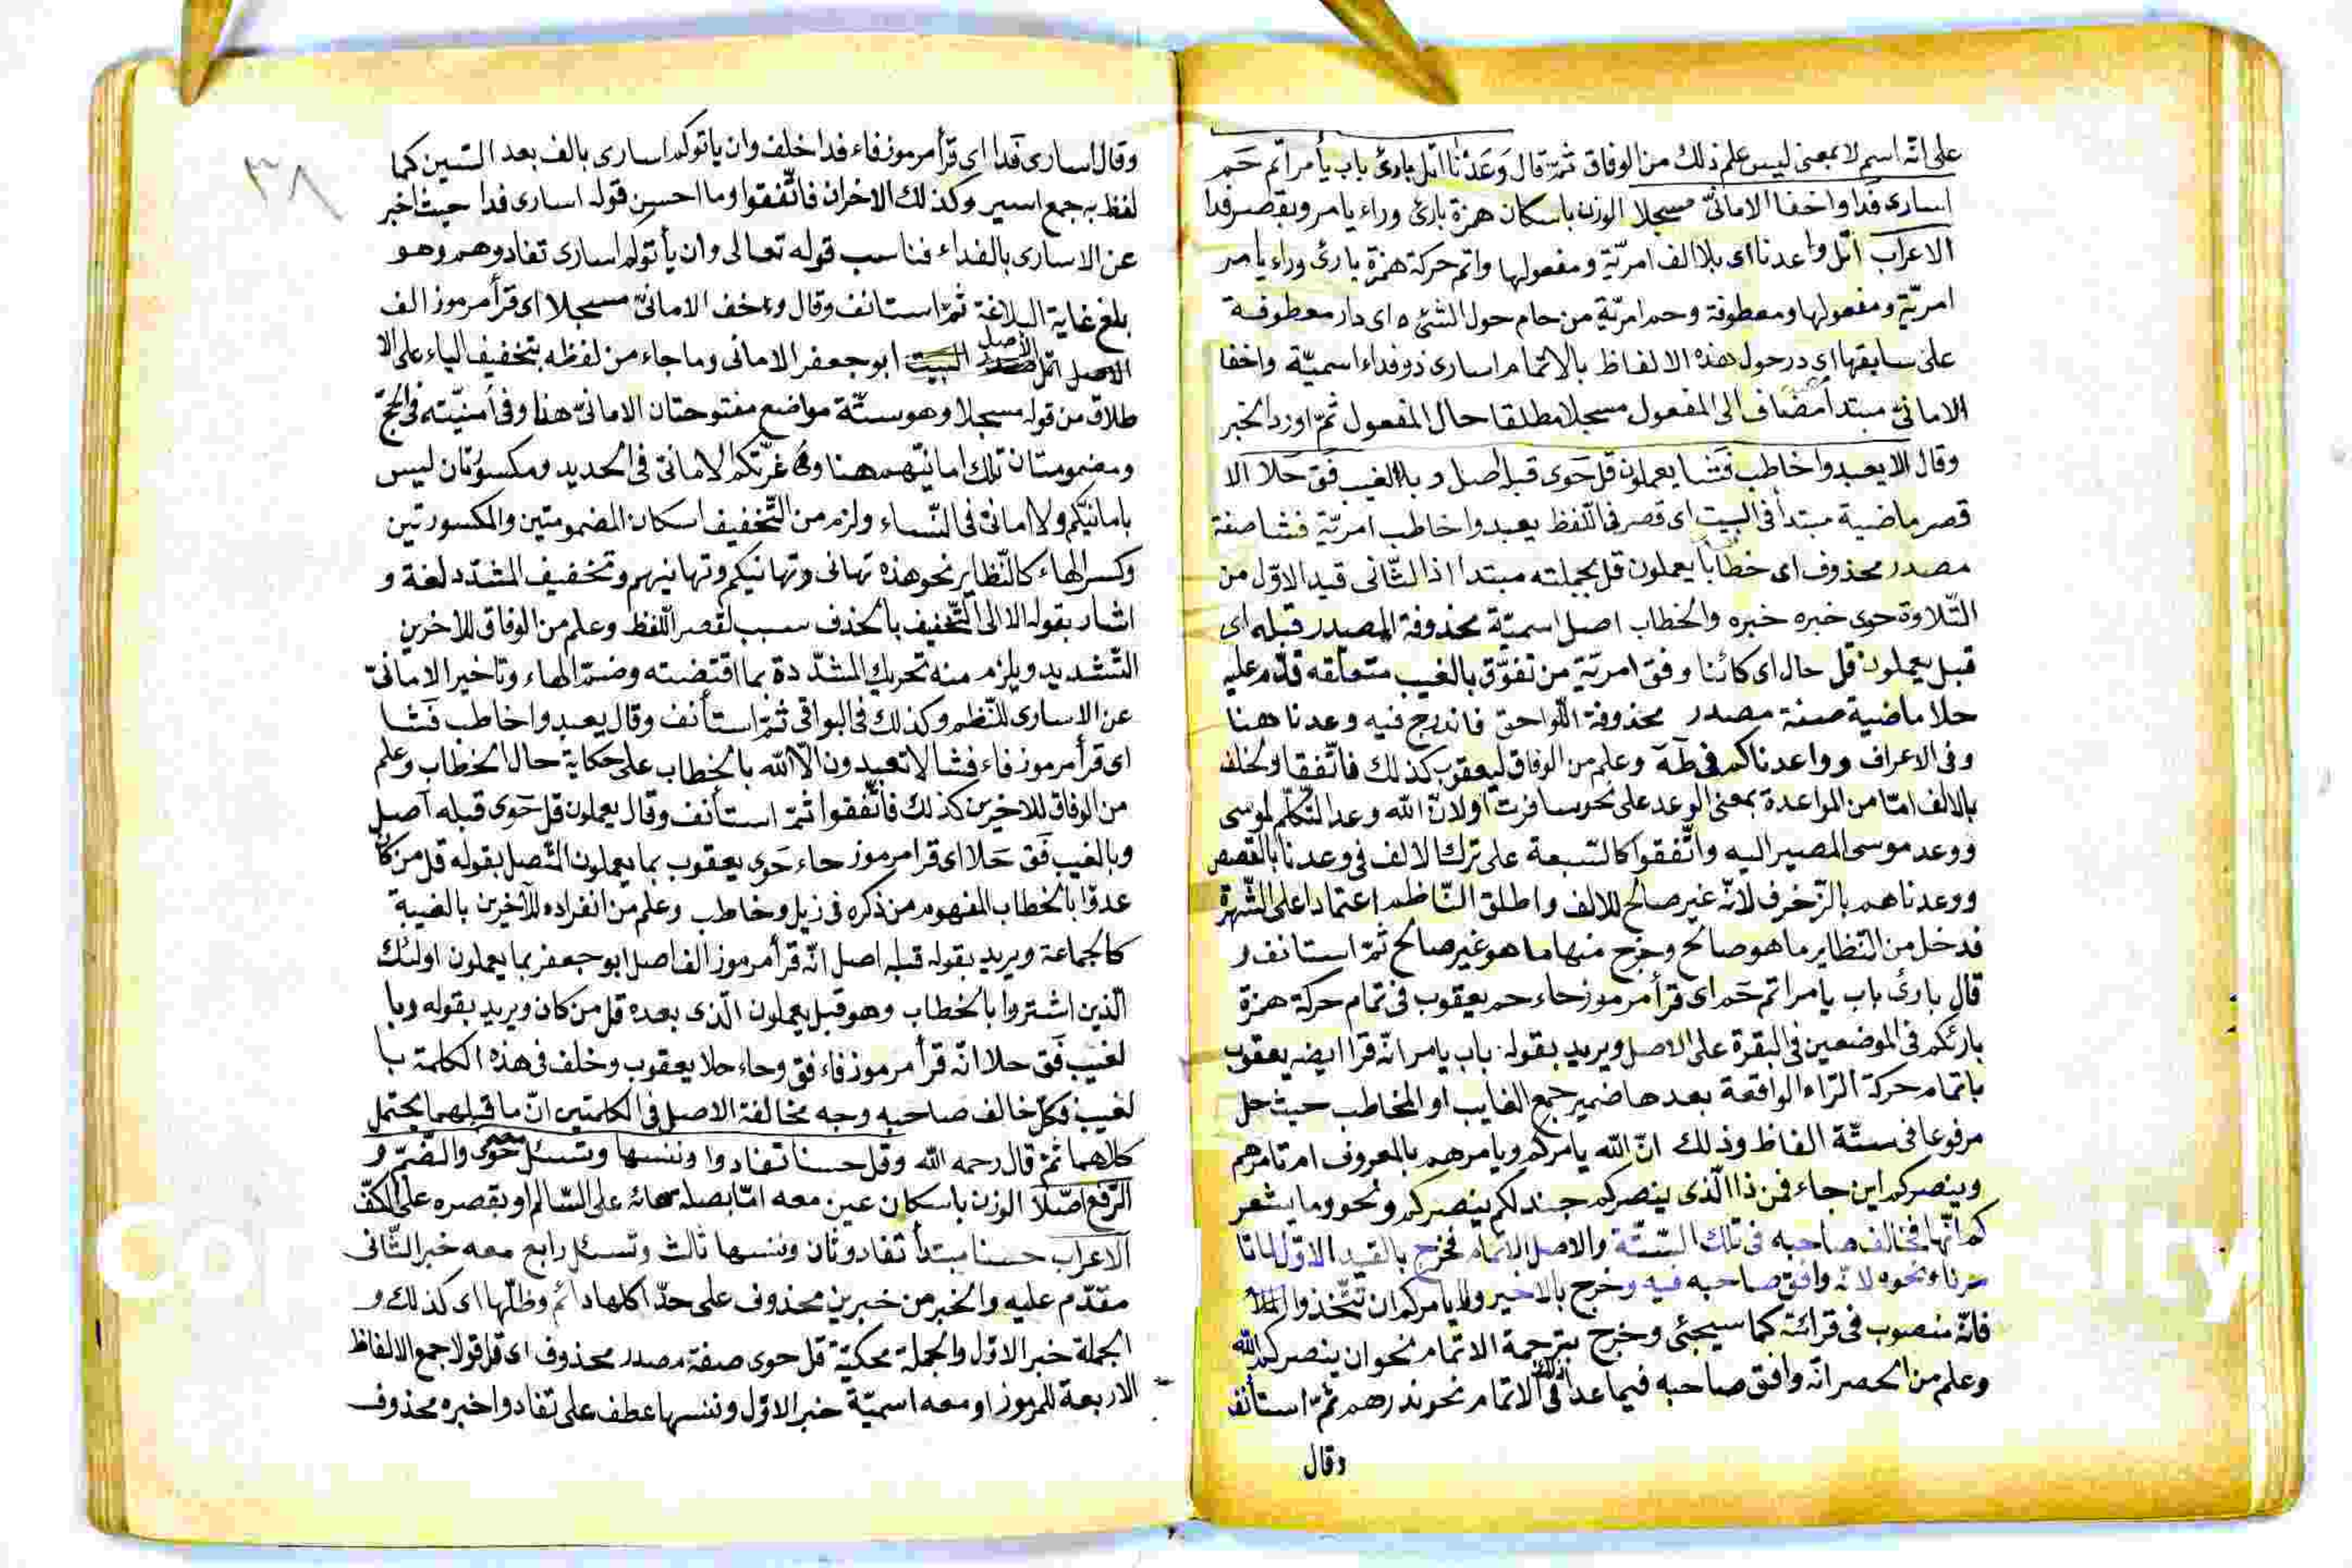 على انّه اسم لا بمعنى ليس علم ذلك من الوفاق ثمّ قال وَعَدْنَا اتل بارئ باب يأمر اتم حَم
اسارى فَدا واخفا الامانىّ مسجلا الوزن باسكان همزة بارئ وراء يامر وبقصر فدا
الاعراب اتل واعدنا اى بلا الف امريّة ومفعولها واتم حركة همزة بارئ وراء يامر
امريّة ومفعولها ومعطوفة وحم امريّة من حام حول الشئ اى دار معطوفة
على سابقها اى در حول هذه الالفاظ بالاتمام اسارى ذو فداء اسميّة واخفا
الامانىّ مبتدأ مضاف الى المفعول مسجلا مطلقا حال المفعول ثمّ اورد الخبر
وقال الا يعبدوا خاطب فَشا يعملون قل حَوى قبله اصل وبالغيب فَق حَلا الا
قصر ماضية مبتدأ فى البيت اى قصر فى اللّفظ يعبدوا خاطب امريّة فشا صفة
مصدر محذوف اى خطابا يعملون قل بجملته مبتدا اذ الثّانى قيد الاوّل من
التّلاوة حوى خبره خبره والخطاب اصل اسميّة محذوفة المصدر قبله اى
قبل يعملون قل حال اى كائنا وفق امريّة من تفوّق بالغيب متعلّقه قدّم عليه
حلا ماضية صفة مصدر محذوفة اللّواحق فاندرج فيه وعدنا هنا
وفى الاعراف وواعدناكم فى طَهَ وعلم من الوفاق ليعقوب كذلك فاتّفقا والخلف
بالالف امّا من المواعدة بمعنى الوعد على نحو سافرت او لانّ الله وعد التّكلّم لموسى
ووعد موسى المصير اليه واتّفقوا كالسّبعة على ترك الالف فى وعدنا بالقصص
ووعدناهم بالزّخرف لانّه غير صالح للالف واطلق النّاظم اعتمادا على الشّهرة
فدخل من النّظاير ما هو صالح وخرج منها ما هو غير صالح ثمّ استانف و
قال بارئ باب يامر اتم حَم اى قرأ مرموز حاء حم يعقوب فى تمام حركة همزة
بارئكم فى الموضعين فى البقرة على الاصل ويريد بقوله باب يامر انّه قرا ايضه يعقوب
باتمام حركة الرّاء الواقعة بعدها ضمير جمع الغايب او المخاطب حيث حل
مرفوعا فى ستّة الفاظ وذلك انّ الله يامركم ويامرهم بالمعروف ام تامرهم
وينصركم اين جاء فمن ذا الّذى ينصركم جند لكم ينصركم ونحو وما يشعر
كم انّها فخالف صاحبه فى تلك السّتّة والاصل الاتمام فخرج بالقيد الاوّل
ونحوه لانّه وافق صاحبه فيه وخرج بالاخير ولا يامركم ان تتّخذوا
فانّه منصوب فى قرائته كما سيجئى وخرج بترجمة الاتمام نحو ان ينصركم الله
وعلم من الحصر انّه وافق صاحبه فيما عدا ذلك فى الاتمام نحو نذرهم ثمّ استأنف
وقال
٣٨
وقال اسارى فَدا اى قرأ مرموز فاء فدا خلف وان ياتوكم اسارى بالف بعد السّين كما
لفظ به جمع اسير وكذلك الاخران فاتّفقوا وما احسن قوله اسارى فدا حيث اخبر
عن الاسارى بالفداء فناسب قوله تعالى وان يأتوكم اسارى تفادوهم وهو
بلغ غاية البلاغة ثمّ استانف وقال واخف الامانىّ مسجلا اى قرأ مرموز الف
الاصل ابو جعفر الامانى وما جاء من لفظه بتخفيف الياء على الا
طلاق من قوله مسجلا وهو ستّة مواضع مفتوحتان الامانىّ هنا وفى أمنيّته فى الحجّ
ومضمومتان تلك امانيّهم هنا وغرّتكم الامانىّ فى الحديد ومكسورتان ليس
بامانيّكم ولا امانىّ فى النّساء ولزم من التّخفيف اسكان المضمومتين والمكسورتين
وكسر الهاء كالنّظاير نحو هذه تهانى وتهانيكم وتهانيهم وتخفيف المشدّد لغة و
اشار بقوله الا الى التّخفيف بالحذف سبب لقصر اللّفظ وعلم من الوفاق للاخرين
التّشديد ويلزم منه تحريك المشدّدة بما اقتضته وضمّ الهاء وتاخير الامانىّ
عن الاسارى للنّظم وكذلك فى البواقى ثمّ استأنف وقال يعبدوا خاطب فَشا
اى قرأ مرموز فاء فشا لا تعبدون الّا الله بالخطاب على حكاية حال الخطاب وعلم
من الوفاق للاخرين كذلك فاتّفقوا ثمّ استأنف وقال يعملون قل حَوى قبله اصل
وبالغيب فَق حَلا اى قرا مرموز حاء حَوى يعقوب بما يعملون المتّصل بقوله قل من كان
عدوّا بالخطاب المفهوم من ذكره فى ذيل وخاطب وعلم من انفراده للآخرين بالغيبة
كالجماعة ويريد بقوله قبله اصل انّه قرأ مرموز الف اصل ابو جعفر بما يعملون اولئك
الّذين اشتروا بالخطاب وهو قبل يعملون الّذى بعده قل من كان ويريد بقوله وبا
لغيب فَق حلا انّه قرأ مرموز فاء فق وحاء حلا يعقوب وخلف فى هذه الكلمة با
لغيب فكلّ خالف صاحبه وجه مخالفة الاصل فى الكلمتين انّ ما قبلهما يحتمل
كلاهما ثمّ قال رحمه الله وقل حسنا تفادوا وننسها وتسئل حَوى والضّمّ و
الرّفع اصّلا الوزن باسكان عين معه امّا بصلة هائه على السّالم او بقصره على الكفّ
الاعراب حسنا مبتدأ تفادو ثان وننسها ثالث وتسئل رابع معه خبر الثّانى
مقدّم عليه والخبر من خبرين محذوف على حدّ اكلها دائم وظلّها اى كذلك و
الجملة خبر الاوّل والجملة محكيّة قل حوى صفة مصدر محذوف اى قل قولا جمع الالفاظ
الاربعة للمرموز او معه اسميّة خبر الاوّل وننسها عطف على تفادوا خبره محذوف